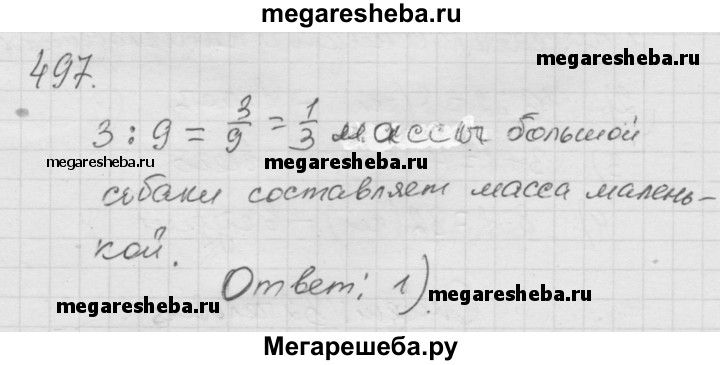 megaresheba.ru
497.
megaresheba.ru
3 : 9 = 3/9 = 1/3 массы большой
megaresheba.ru megaresheba.ru
собаки составляет масса малень-
кой.
Ответ: 1).
megaresheba.ru megaresheba.ru
Мегарешеба.ру